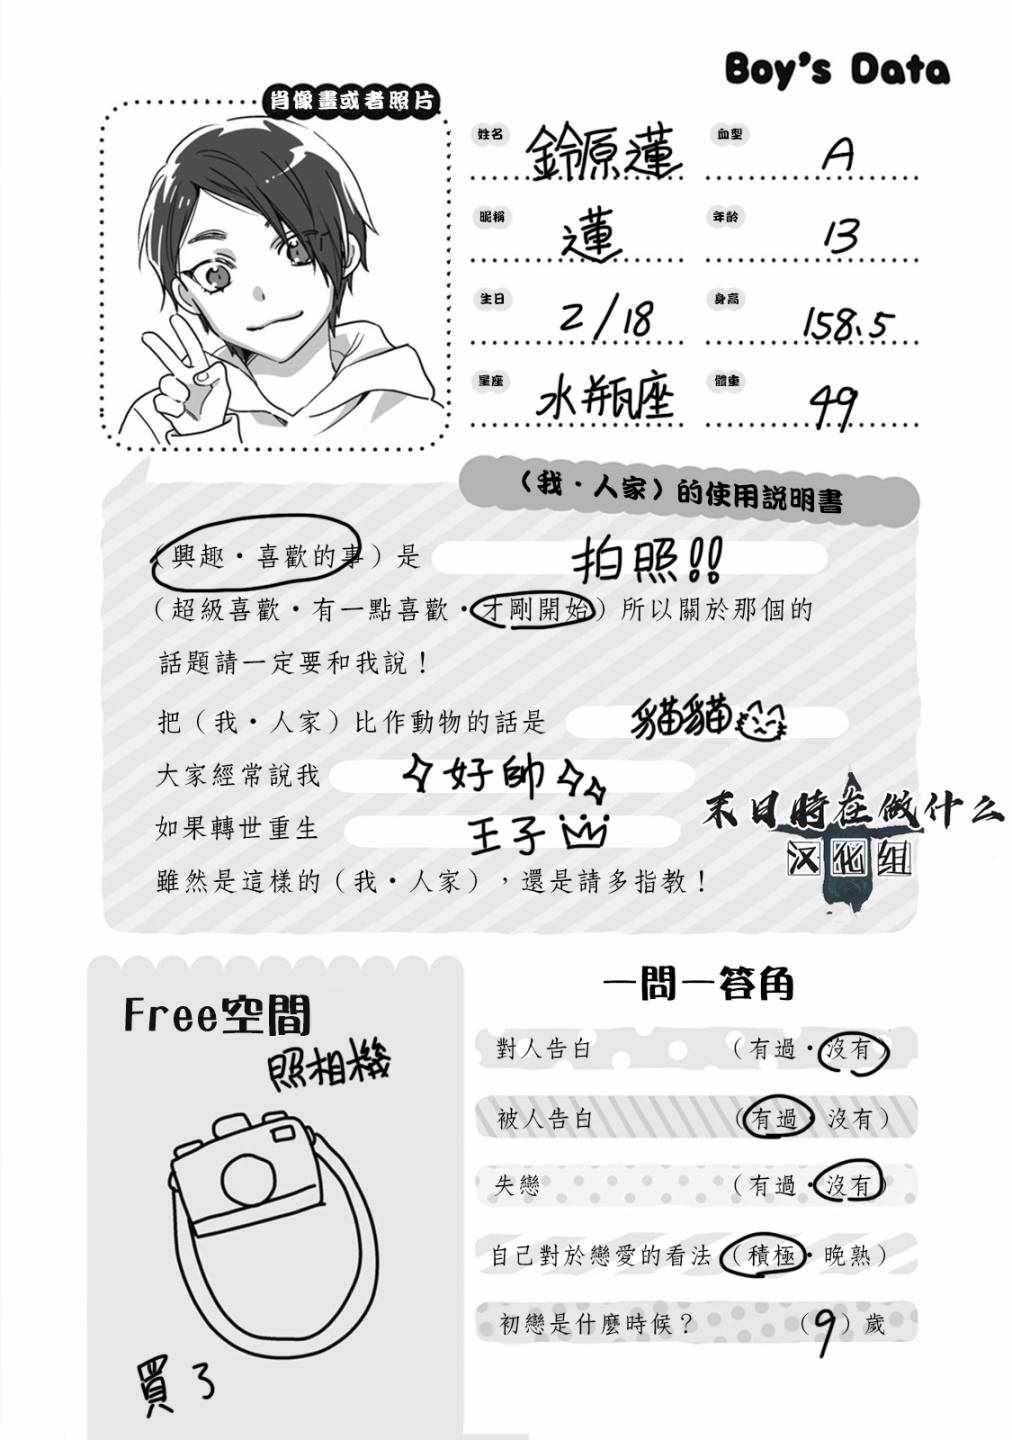 Boy's Data
肖像畫或者照片
姓名 鈴原蓮 血型 A
昵稱 蓮 年齡 13
生日 2/18 身高 158.5
星座 水瓶座 體重 49
（我・人家）的使用說明書
（興趣・喜歡的事）是 拍照!!
（超級喜歡・有一點喜歡・才剛開始）所以關於那個的
話題請一定要和我說！
把（我・人家）比作動物的話是 貓貓
大家經常說我 好帥
如果轉世重生 王子
雖然是這樣的（我・人家），還是請多指教！
末日時在做什么
汉化组
Free空間
照相機
買了
一問一答角
對人告白 （有過・沒有）
被人告白 （有過・沒有）
失戀 （有過・沒有）
自己對於戀愛的看法 （積極・晚熟）
初戀是什麼時候？ （9）歲